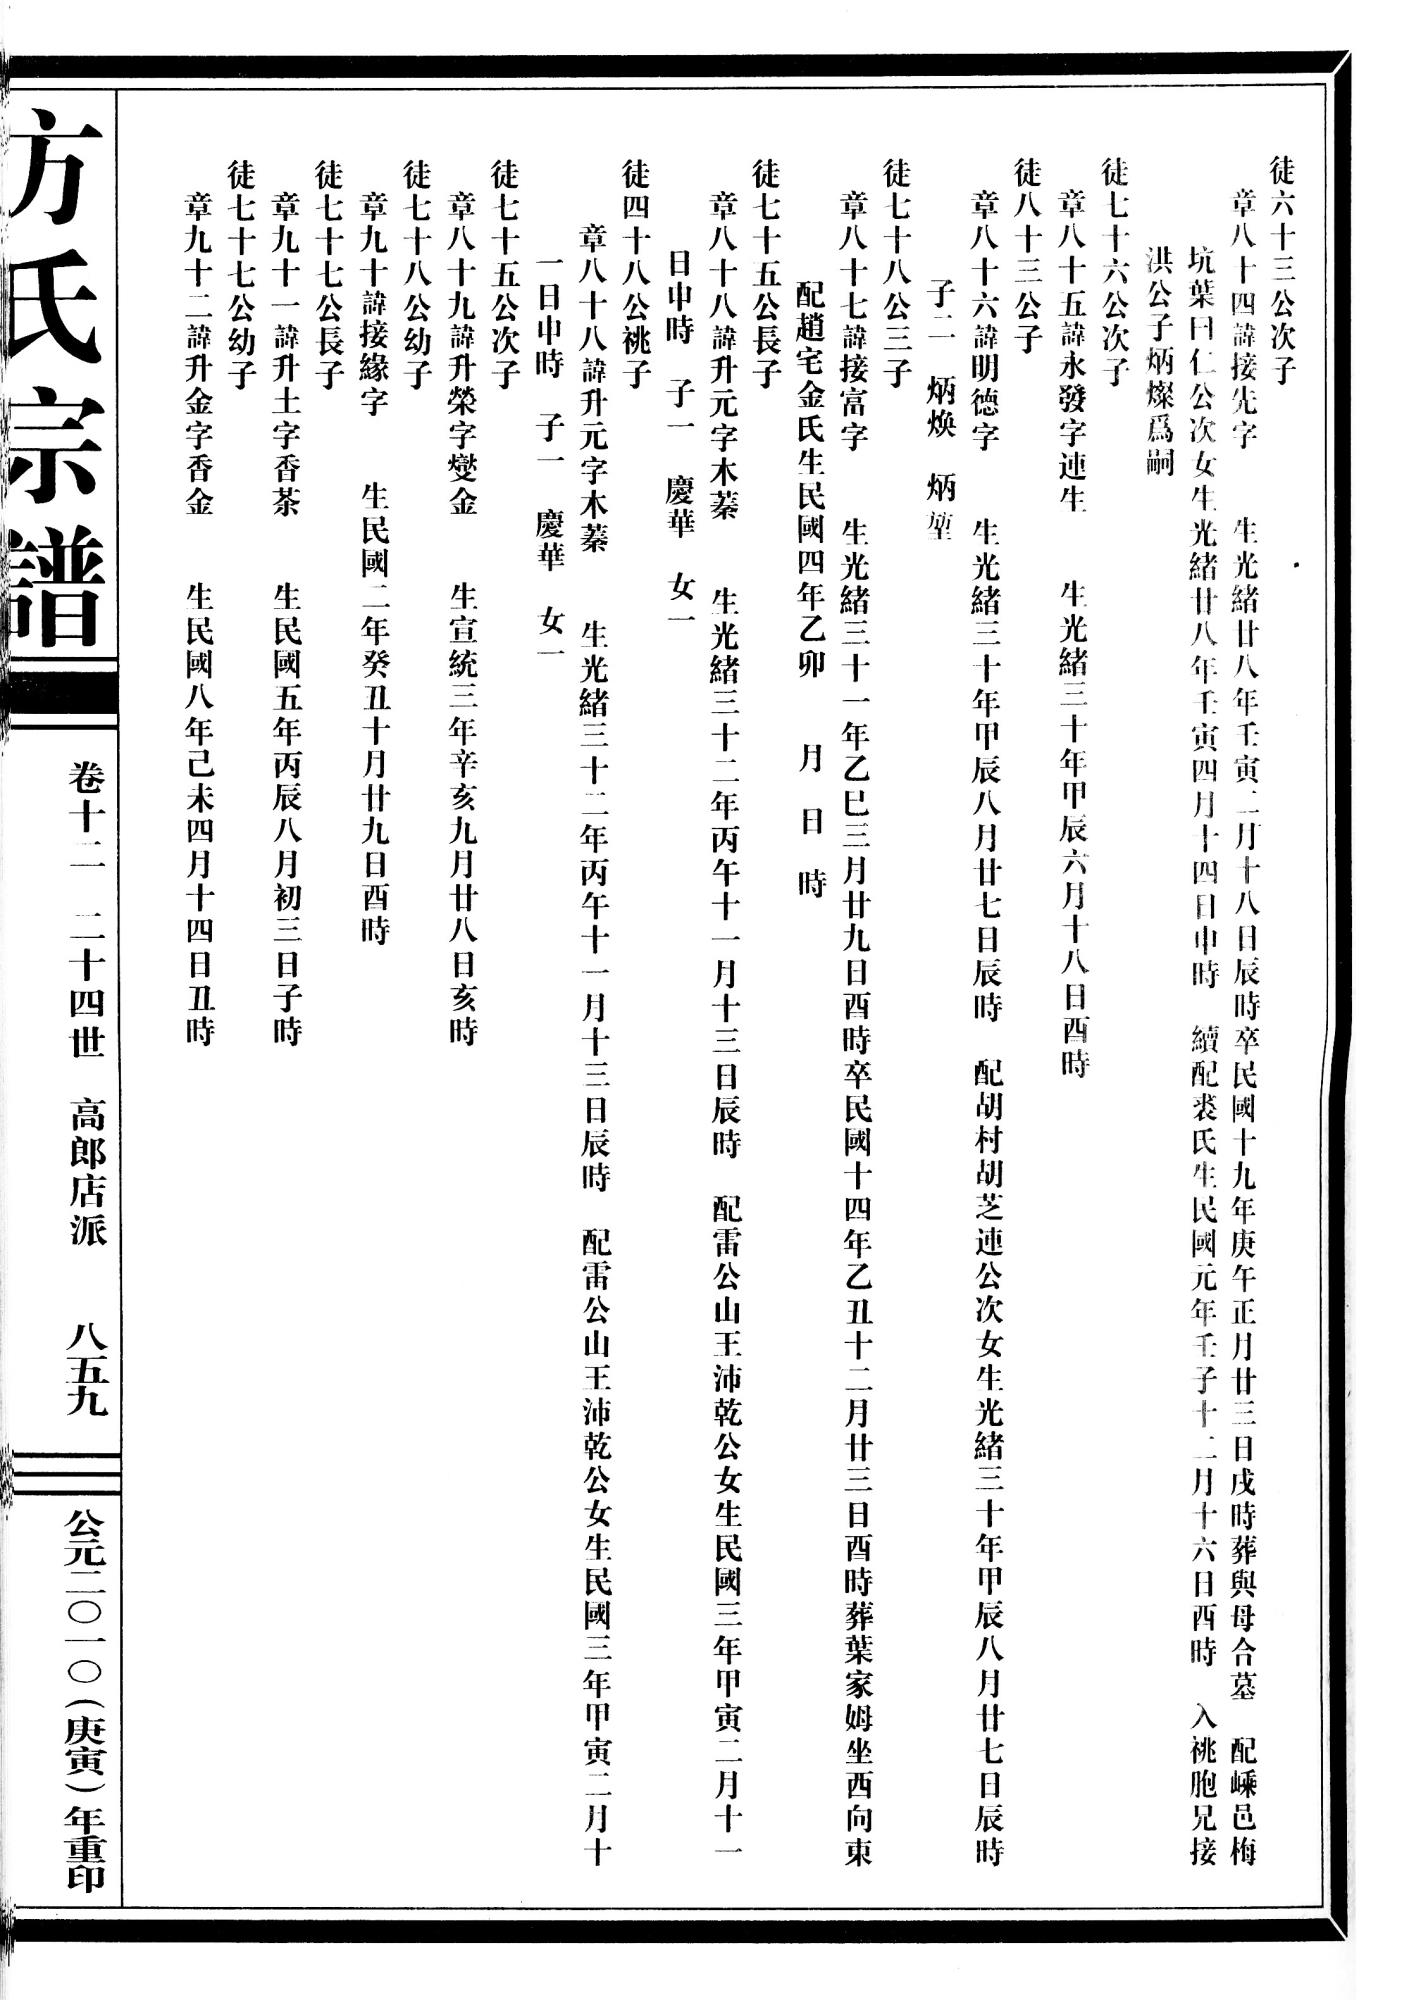 徒六十三公次子
章八十四諱接先字　生光緒廿八年壬寅二月十八日辰時卒民國十九年庚午正月廿三日戌時葬與母合墓　配嵊邑梅
坑葉曰仁公次女生光緒廿八年壬寅四月十四日申時　續配裘氏生民國元年壬子十二月十六日酉時　入祧胞兄接
洪公子炳燦爲嗣
徒七十六公次子
章八十五諱永發字連生　生光緒三十年甲辰六月十八日酉時
徒八十三公子
章八十六諱明德字　生光緒三十年甲辰八月廿七日辰時　配胡村胡芝連公次女生光緒三十年甲辰八月廿七日辰時
子二　炳煥　炳堃
徒七十八公三子
章八十七諱接富字　生光緒三十一年乙巳三月廿九日酉時卒民國十四年乙丑十二月廿三日酉時葬葉家姆坐西向東
配趙宅金氏生民國四年乙卯　月　日　時
徒七十五公長子
章八十八諱升元字木蓁　生光緒三十二年丙午十一月十三日辰時　配雷公山王沛乾公女生民國三年甲寅二月十一
日申時　子一　慶華　女一
徒四十八公祧子
章八十八諱升元字木蓁　生光緒三十二年丙午十一月十三日辰時　配雷公山王沛乾公女生民國三年甲寅二月十
一日申時　子一　慶華　女一
徒七十五公次子
章八十九諱升榮字燮金　生宣統三年辛亥九月廿八日亥時
徒七十八公幼子
章九十諱接緣字　生民國二年癸丑十月廿九日酉時
徒七十七公長子
章九十一諱升土字香茶　生民國五年丙辰八月初三日子時
徒七十七公幼子
章九十二諱升金字香金　生民國八年己未四月十四日丑時
方氏宗譜
卷十二　二十四世　高郎店派　八五九
公元二〇一〇（庚寅）年重印